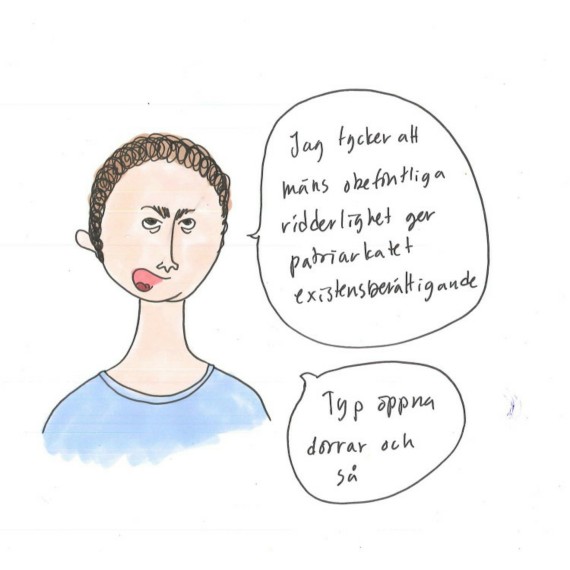 Jag tycker att
mäns obefintliga
ridderlighet ger
patriarkatet
existensberättigande
Typ öppna
dörrar och
så